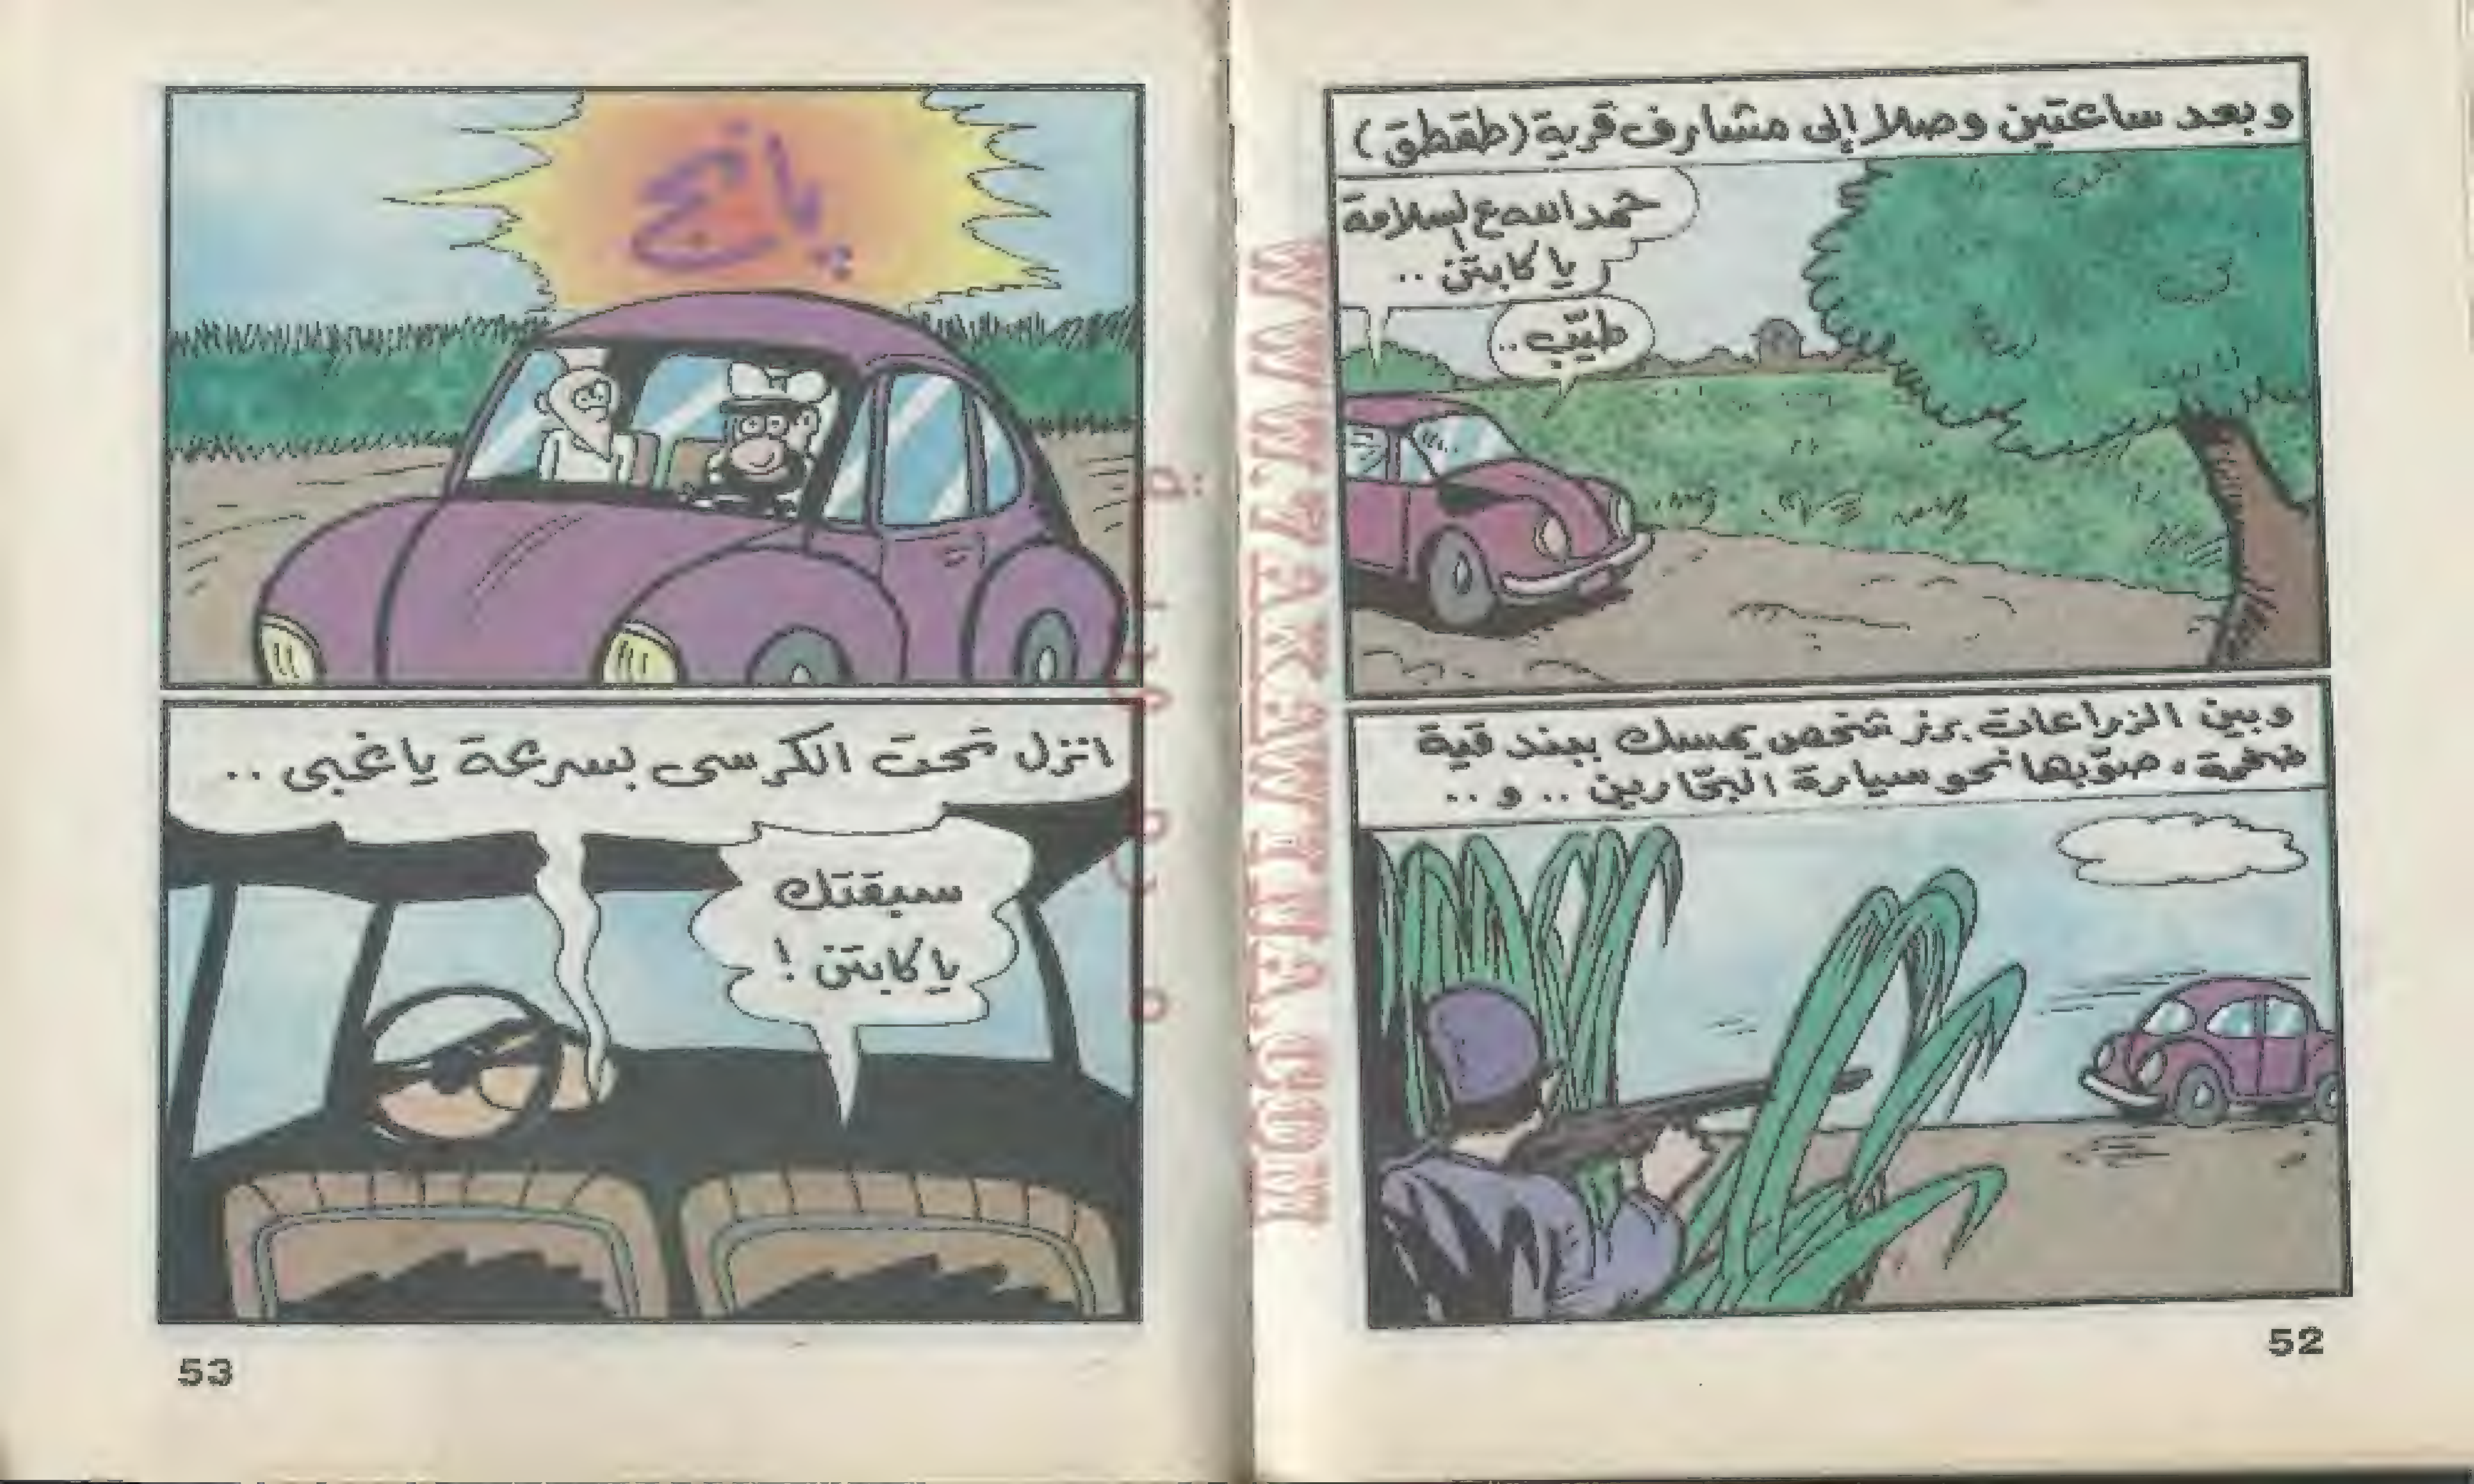 وبعد ساعتين وصلا إلى مشارف قرية (طقطق)
حمد الله ع السلامة
يا كابتن ..
طيّب ..
وبين الزراعات برز شخص يمسك ببندقية
ضخمة، صوّبها نحو سيارة البحّارين .. و ..
52
انزل تحت الكرسى بسرعة يا غبى ..
سبقتك
يا كابتن !
53
WWW.ZAKAWEYAA.COM